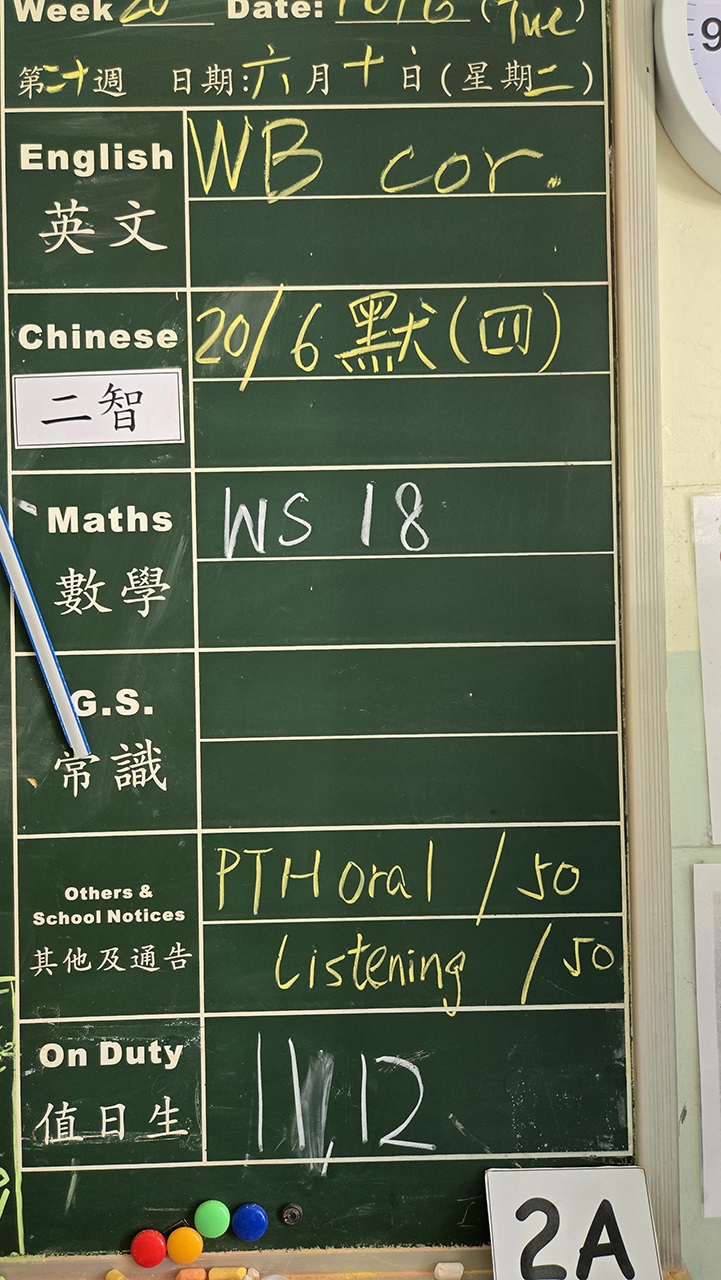 Week 20 Date: 10/6 (Tue)
第二十週 日期:六月十日(星期二)
English WB cor.
英文
Chinese 20/6 默(四)
二智
Maths WS 18
數學
G.S.
常識
Others &
School Notices PTH oral /50
其他及通告 Listening /50
On Duty 11, 12
值日生
2A
9